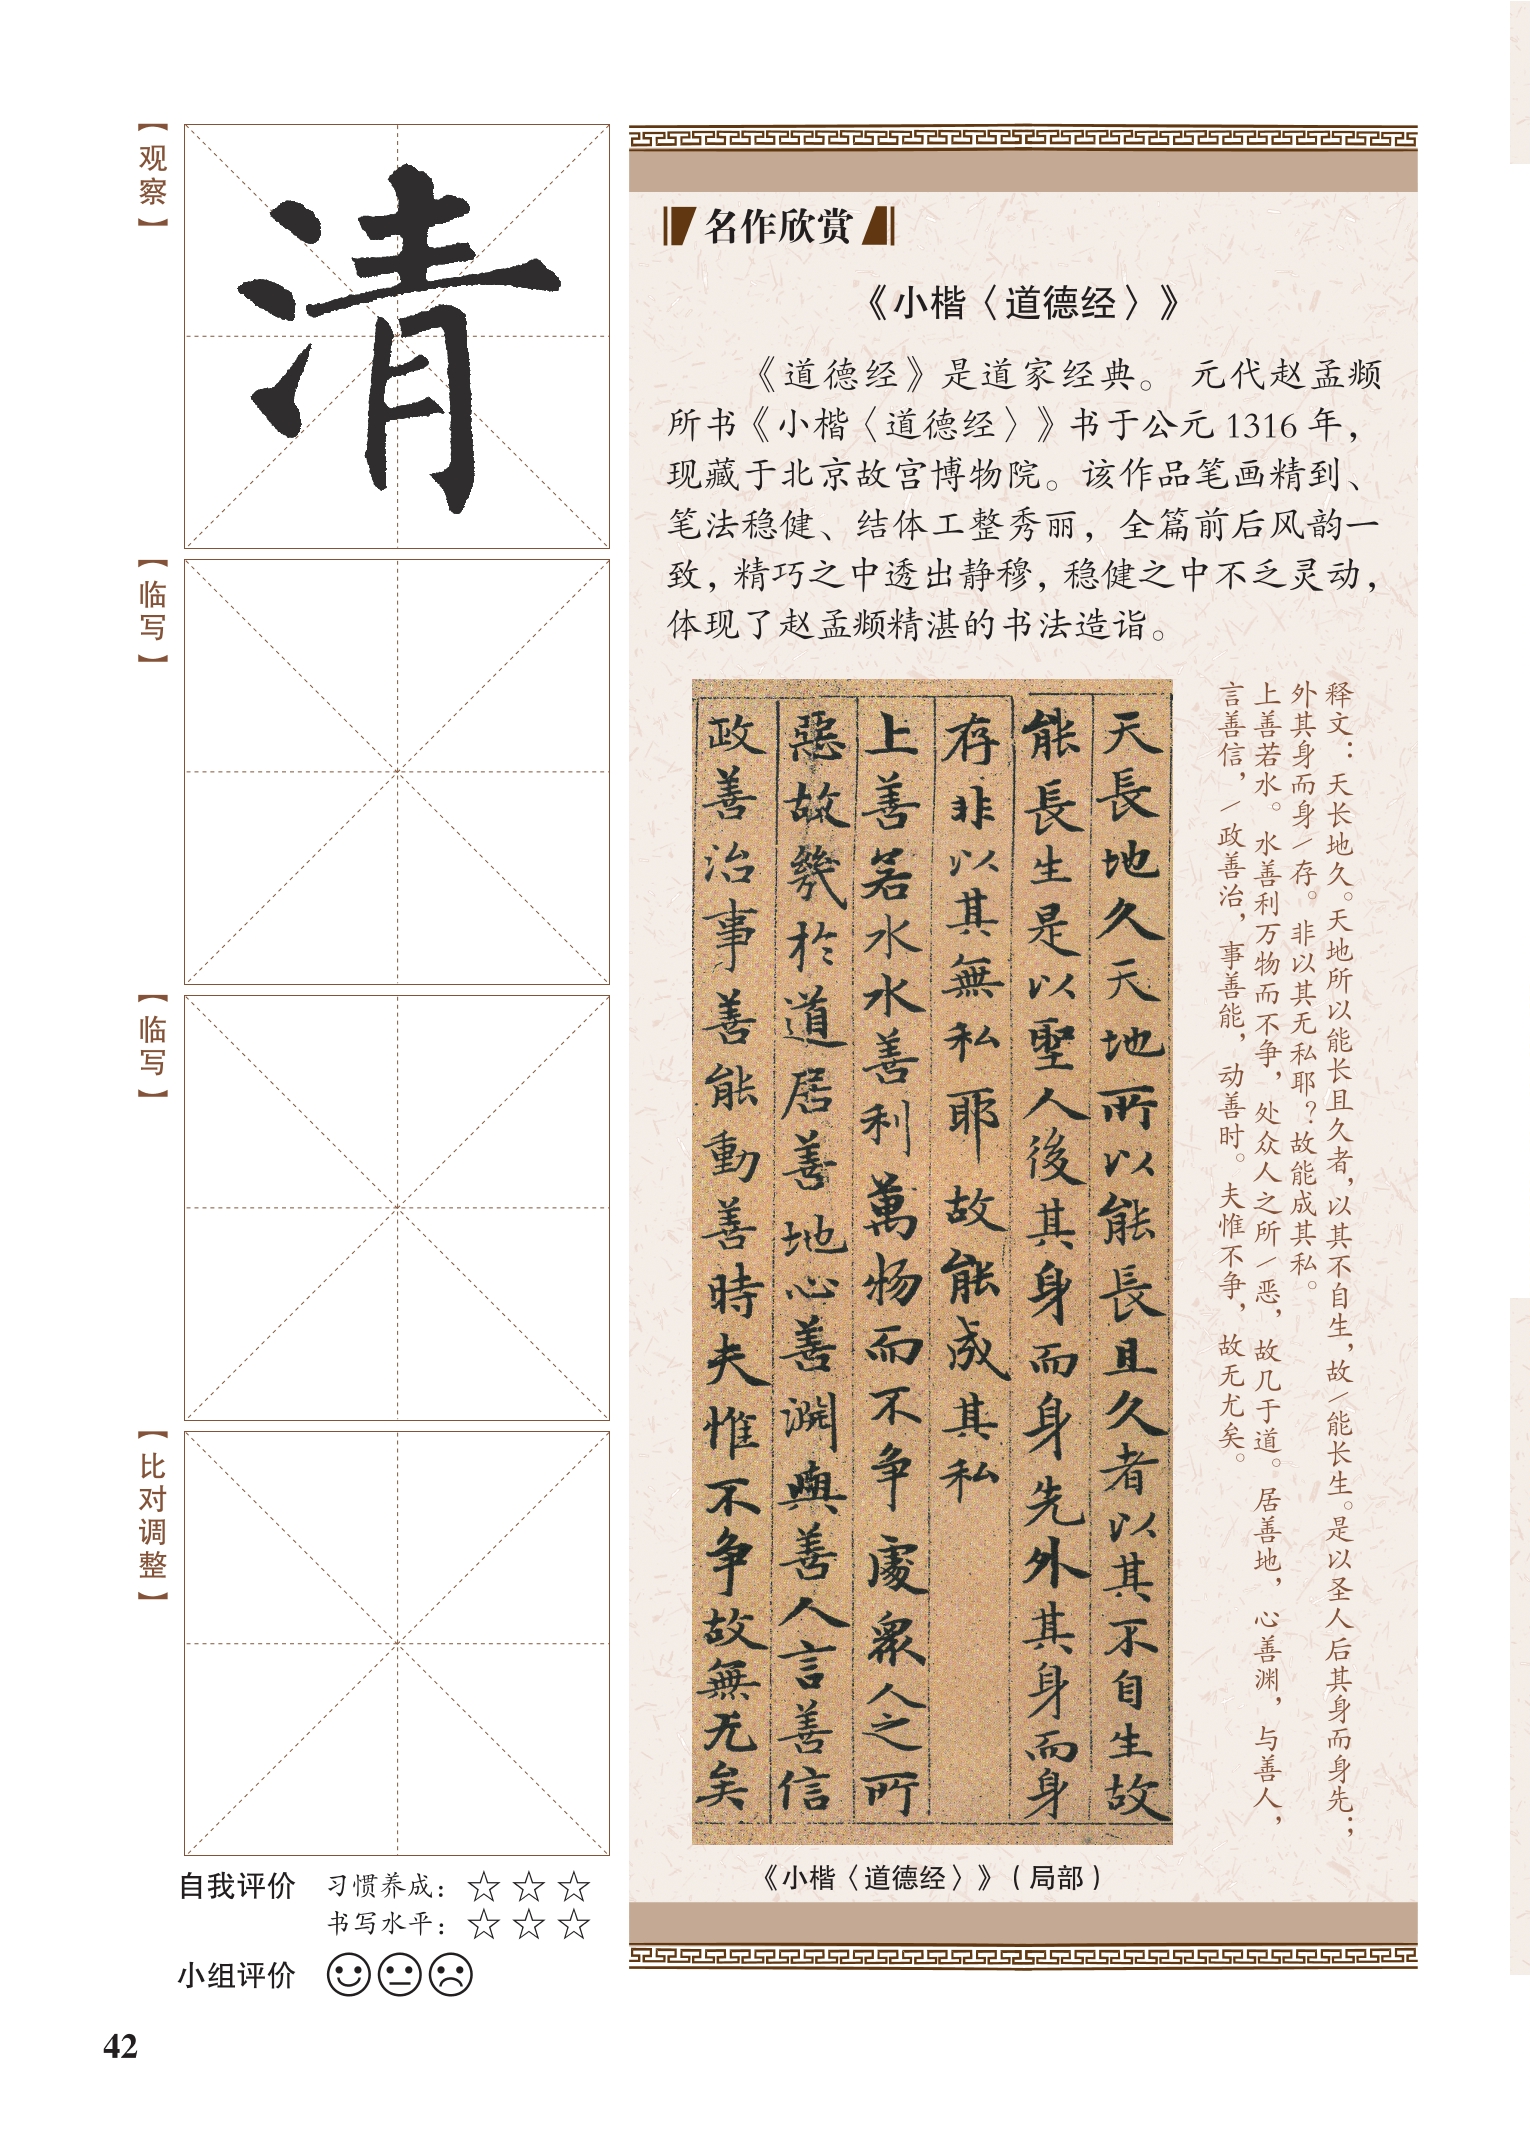 【观察】
清
【临写】
【临写】
【比对调整】
自我评价 习惯养成：☆ ☆ ☆
书写水平：☆ ☆ ☆
小组评价
42
名作欣赏
《小楷〈道德经〉》
《道德经》是道家经典。 元代赵孟𫖯
所书《小楷〈道德经〉》书于公元 1316 年，
现藏于北京故宫博物院。该作品笔画精到、
笔法稳健、结体工整秀丽，全篇前后风韵一
致，精巧之中透出静穆，稳健之中不乏灵动，
体现了赵孟𫖯精湛的书法造诣。
天長地久天地所以能長且久者以其不自生故
能長生是以聖人後其身而身先外其身而身
存非以其無私耶故能成其私
上善若水水善利萬物而不争處衆人之所
惡故幾於道居善地心善淵與善人言善信
政善治事善能動善時夫惟不争故無尤矣
释文：天长地久。天地所以能长且久者，以其不自生，故／能长生。是以圣人后其身而身先；
外其身而身／存。非以其无私耶？故能成其私。
上善若水。水善利万物而不争，处众人之所／恶，故几于道。居善地，心善渊，与善人，
言善信，／政善治，事善能，动善时。夫惟不争，故无尤矣。
《小楷〈道德经〉》（局部）